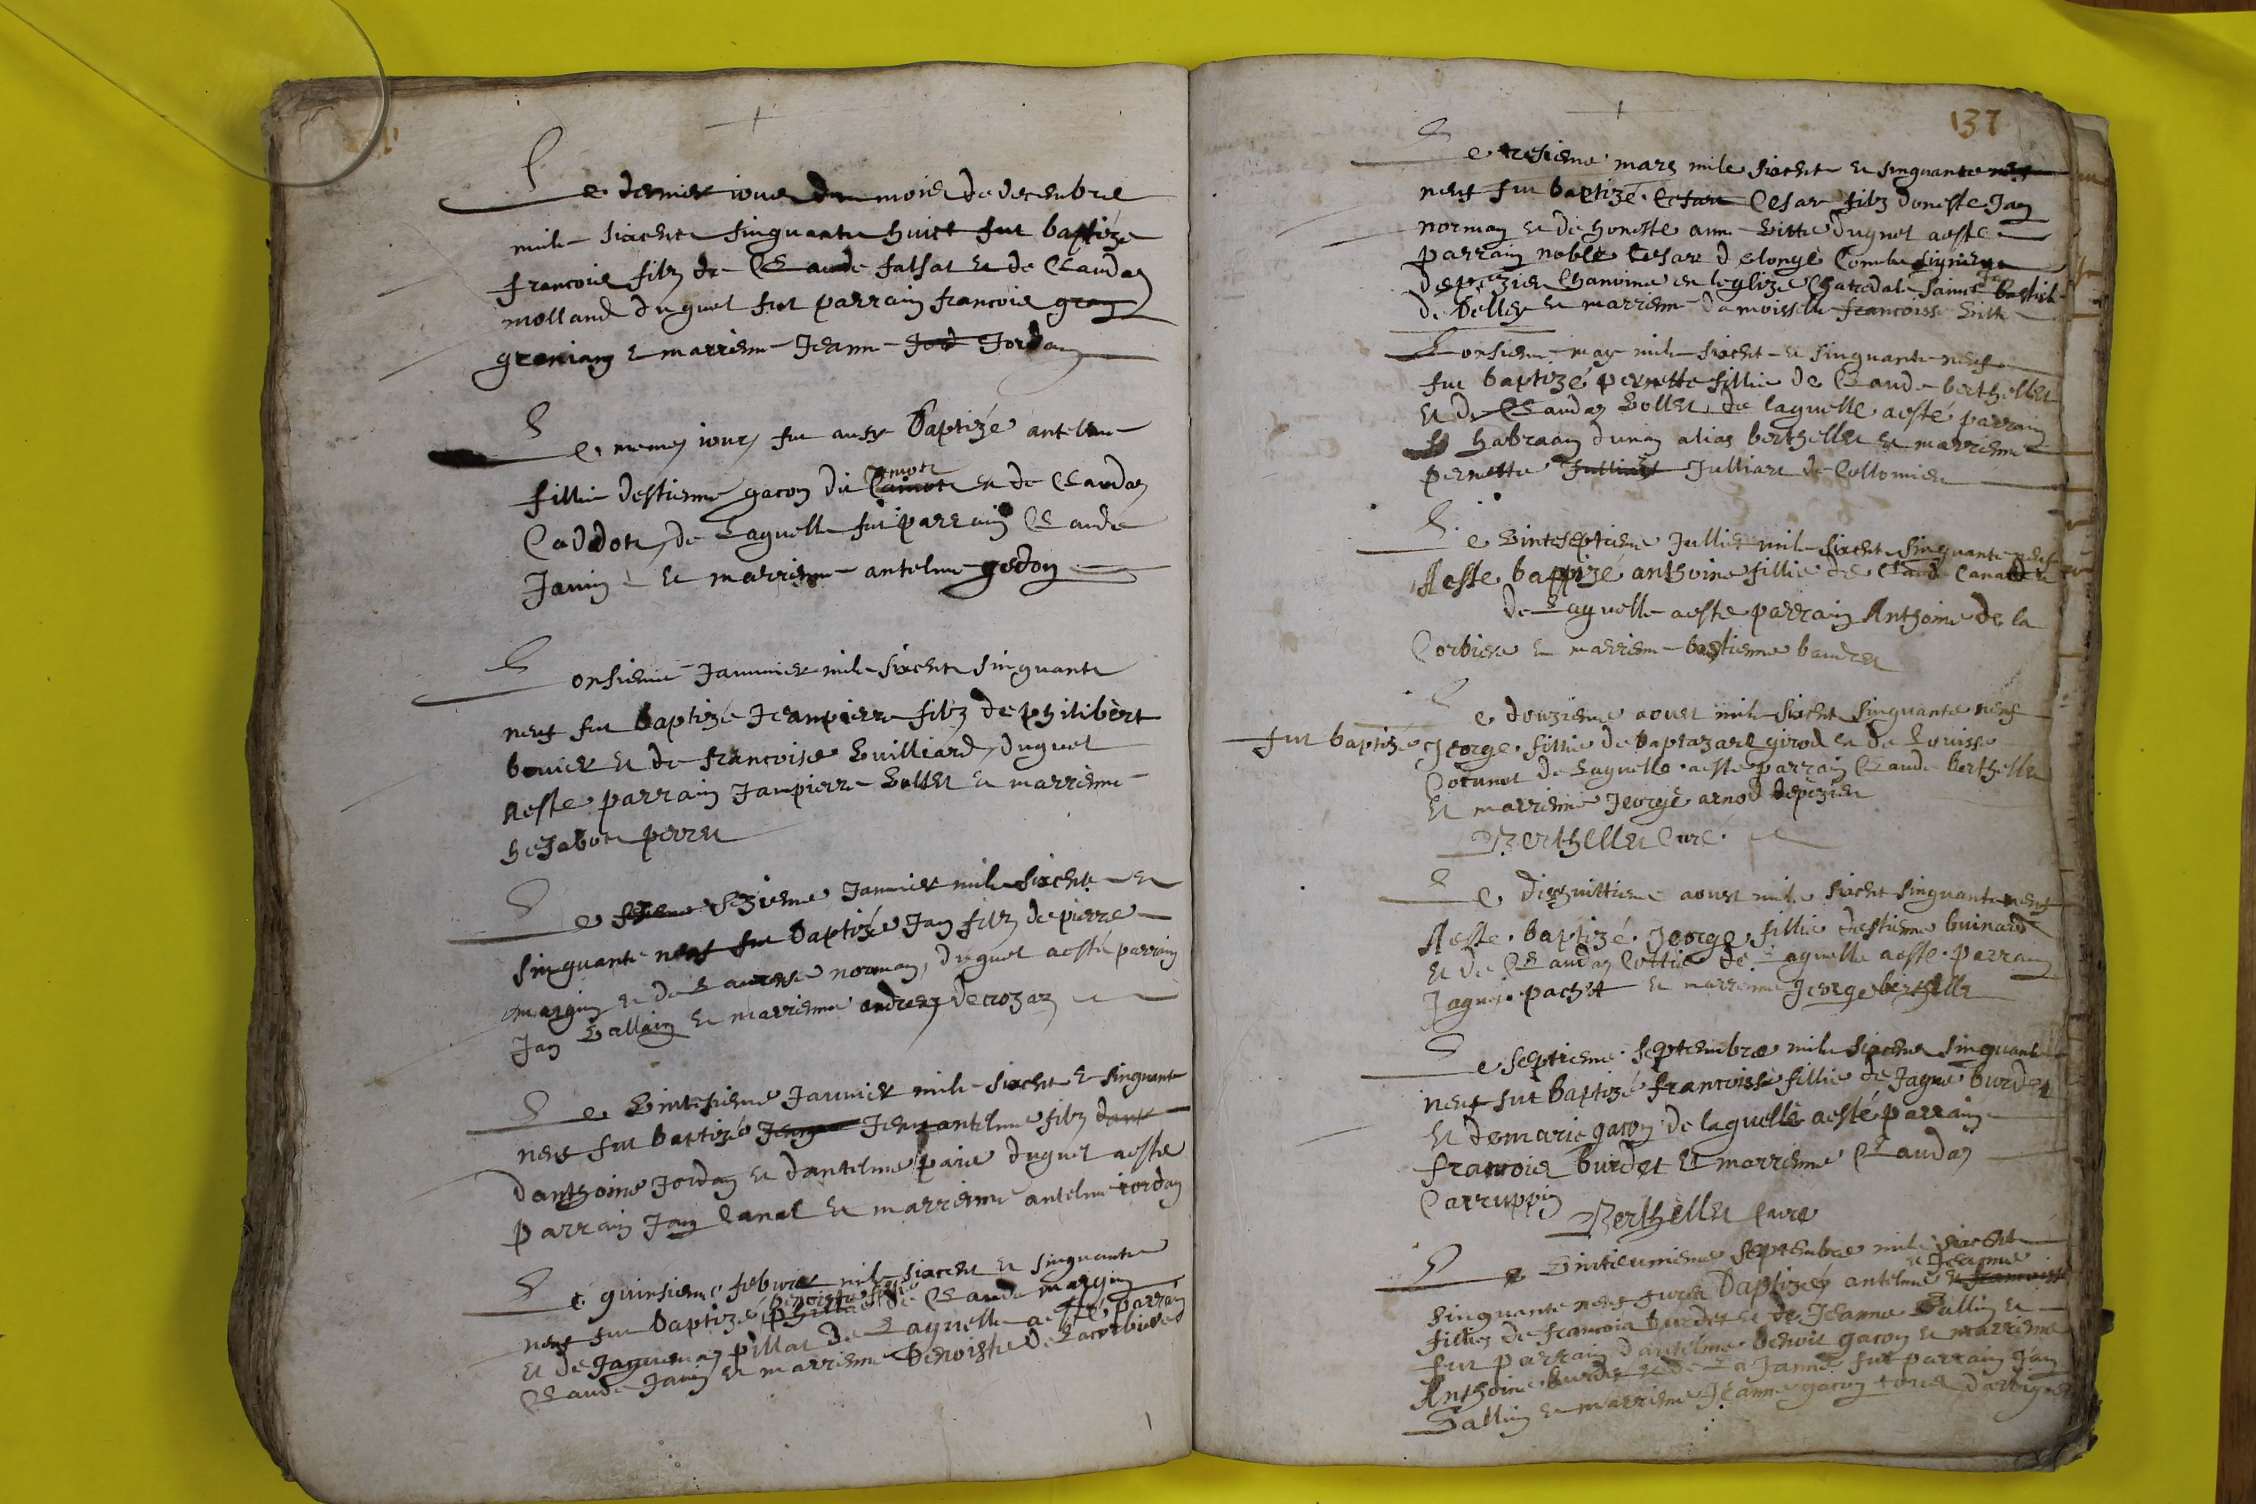 Le dernier iour du mois de decembre
mile sixcent singuante huict fut baptize
francois filz de Claude falsat et de Clauda
molland duquel fut parrain francois gran
grenian et marrienne Jeanne Jord Jordan
Le memes iours fut ausy baptizé antelme
fillie destienne gacon dit Camot et de Clauda
Caddot, de Laquelle fut parrain Claude
Janin et marrienne antelme gedon
Lonsieme Janvier mile sixcent singuante
neuf fut baptizé Jeanpierre filz de philibert
bovier et de francoise Builliard, duquel
Aeste parrain Janpierre Bollet et marrienne
perret
Le sezieme Janvier mile sixcent et
singuante neuf fut baptizé Jan filz de pierre
margin et de Laurence norman, duquel aesté parrain
Jan Ballin et marrienne andrea decrozaz
Le Vintesieme Janvier mile sixcent et singuante
neuf fut baptizé Jean antelme filz
danthoine Jordan et dantelme paris duquel aeste
parrain Jan Canal et marrienne antelme iordan
Le quinsieme febvrier mile sixcent et singuante
neuf fut baptizé benoiste fillie de Claude margin
et de Jaquema pillat de Laquelle aesté parrain
Claude Janin et marrienne benoiste de Lacorbiere
137
Le tresieme mars mile sixcent et singuante neuf
neuf fut baptizé Cesar Cesar filz doneste Jan
norman et de honeste anne Vitte duquel aeste
parrain noble Cesar delonge Comte
Chanoine en leglize Chatedale Sainct Jan bastiste
de Belley et marrienne damoisselle francoisse Vitte
Lonsieme may mile sixcent et singuante neuf
fut baptizé pernette fillie de Claude berthellet
et de Clauda Bollet, de laquelle aesté parrain
habraam dunan alias berthellet et marrienne
pernette Julliart Julliart de Collomieu
Le Vinteseptieme Jullier mile sixcent singuante neuf
Aeste baptizé anthoine fillie de Claude
de Laquelle aeste parrain Anthoine de la
Corbiere et marrienne bastienne baudet
Le douzieme aoust mile sixcent singuante neuf
fut baptizé Jeorge fillie de baptazard girod et de Louisse
Cocunot de Laquelle aeste parrain Claude berthellet
et marrienne Jeorge arnod depezieu
Berthellet Curé
Le dixhuittieme aoust mile sixcent singuante neuf
Aeste baptizé Jeorge fillie destienne buinard
et de Clauda Cottin de Laquelle aeste parrain
Jaques pachot et marrienne Jeorge berthellet
Le septieme septembre mile sixcent singuante
neuf fut baptizé francoisse fillie de Jaque burdet
et de marie gacon de laquelle aesté parrain
francois burdet et marrienne Clauda
Carruppin
Berthellet Curé
Le Vinteunieme septembre mile sixcent
singuante neuf furent baptizés antelme et Jeanne francoisse
fillies de francois burdet et de Jeanne Ballin et
fut parrain dantelme benoit gacon et marrienne
Anthoine burdet et de La Janne fut parrain Jan
Ballin et marrienne Jeanne gacon tous